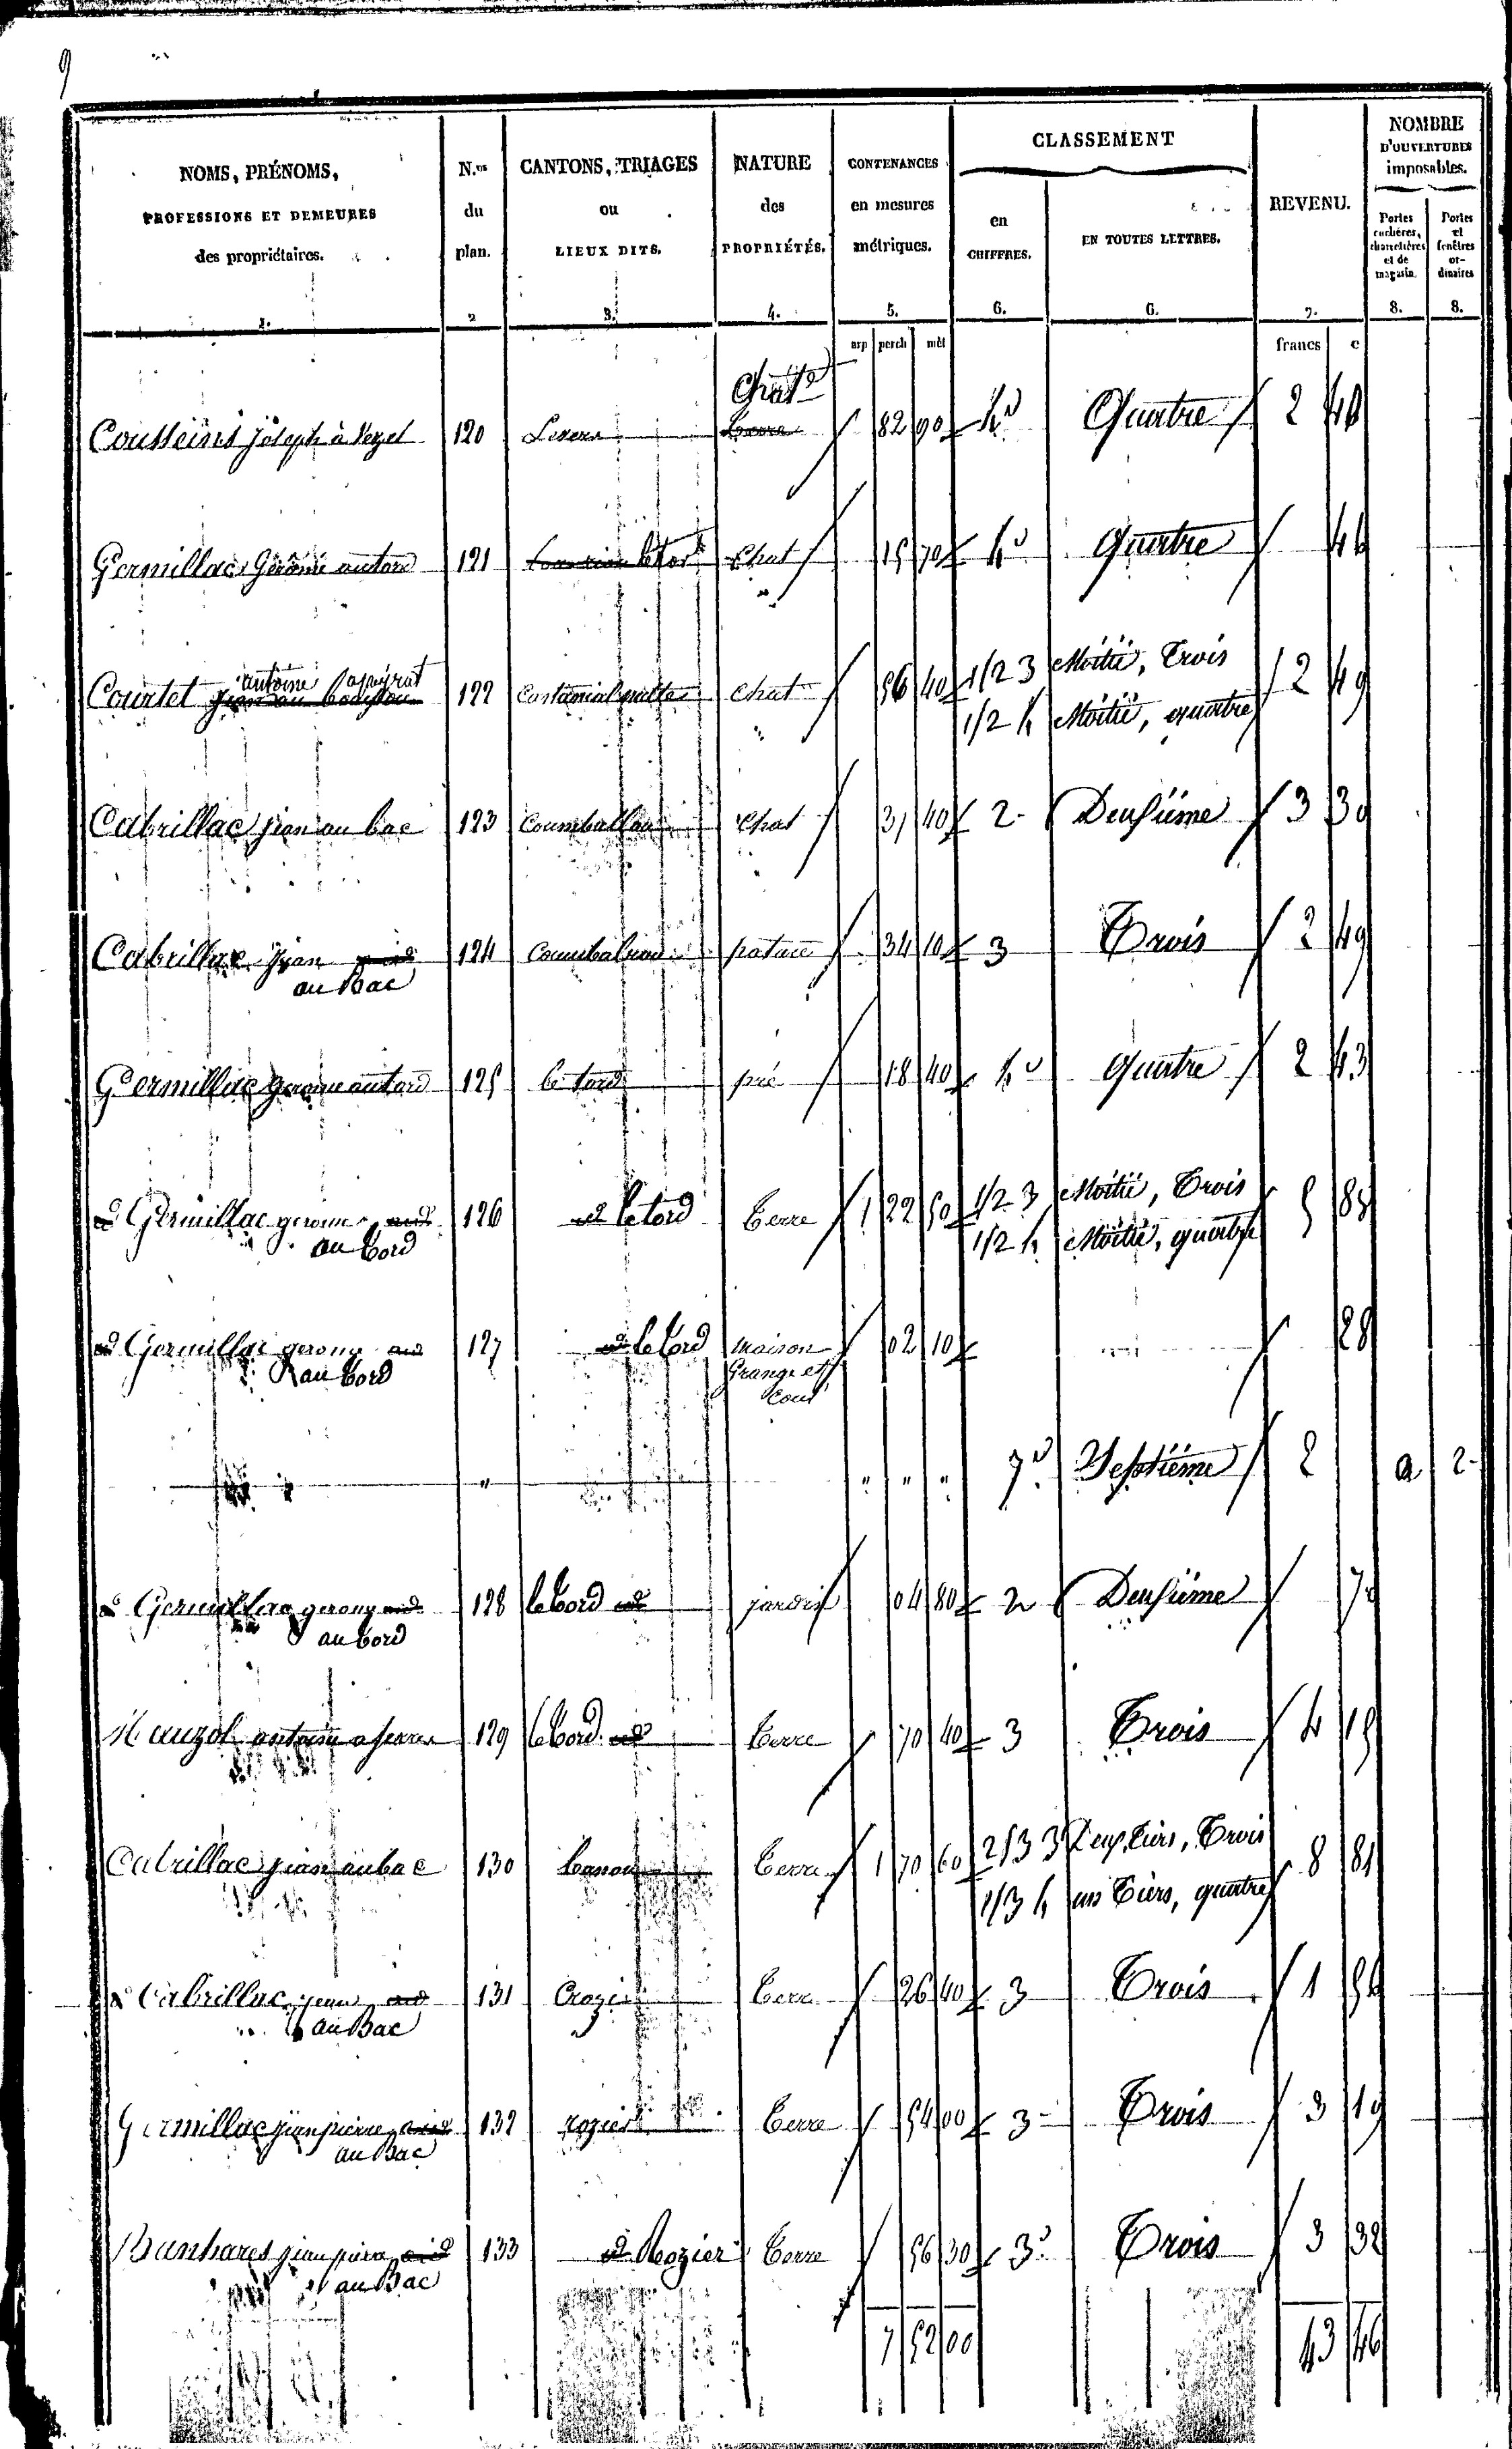 9
NOMS, PRÉNOMS,
PROFESSIONS ET DEMEURES
des propriétaires.
1.
N.os
du
plan.
2
CANTONS, TRIAGES
ou
LIEUX DITS.
3.
NATURE
des
PROPRIÉTÉS.
4.
CONTENANCES
en mesures
métriques.
5.
CLASSEMENT
en
CHIFFRES.
6.
EN TOUTES LETTRES.
6.
REVENU.
7.
NOMBRE
D'OUVERTURES
imposables.
Portes
cochères,
charretières
et de
magasin.
8.
Portes
et
fenêtres
or-
dinaires
8.
arp perch mèt francs c
Joseph à 120 82 90 4e Quatre 2 40
Germillac 121 Chat 15 70 4e Quatre
antoine
Courtet 122 Chat 56 40 1/2 3 Moitié, Trois 2 49
1/2 4 Moitié, quatre
Cabrillac jean au bac 123 Chat 31 40 2 Deusiéme 3 30
Cabrillac jean 124 pature 34 10 3 Trois 2 49
au Bac
Germillac 125 le tord pré 18 40 4e quatre 2 43
Germillac gerome 126 le tord terre 1 22 50 1/2 3 Moitié, Trois 5 85
au tord 1/2 4 Moitié, quatre
Germillac gerome 127 le tord maison 02 10 28
au tord Grange et
Cour
" " " " 7e Septiéme 2 a 2
Germillac gerome 128 le tord jardin 04 80 2 Deusiéme 70
au tord
antoine 129 le tord terre 70 40 3 Trois 4 15
Cabrillac jean au bac 130 terre 1 70 60 2/3 3 Deux Tiers, Trois 8 81
1/3 4 un Tiers, quatre
Cabrillac jean 131 terre 26 40 3 Trois 1
au Bac
Germillac jean pierre 132 rozier terre 54 00 3 Trois 3 19
au Bac
jean pierre 133 Rozier terre 56 30 3e Trois 3 32
au Bac
7 52 00 43 46